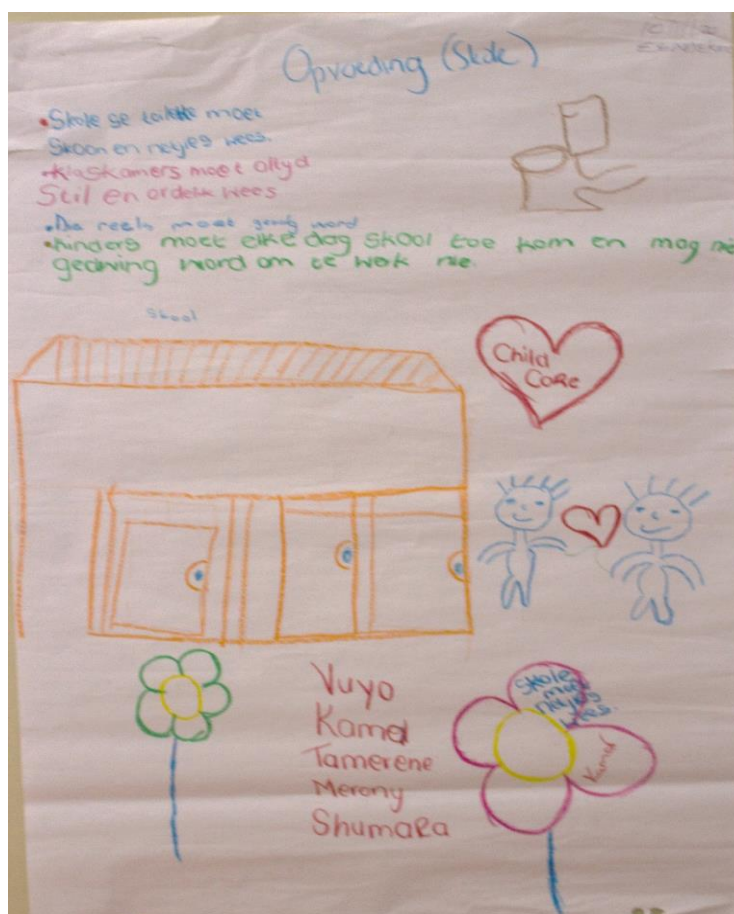 Opvoeding (Skole)
• Skole se toilette moet
Skoon en netjies wees.
• Klaskamers moet altyd
Stil en ordelik wees
• Die reels moet word
• kinders moet elke dag skool toe kom en mag nie
gedwing word om te werk nie.
Skool
Child
Care
Vuyo
Kamel
Tamerene
Merony
Shumara
Skole
moet
netjies
wees.
Kamel